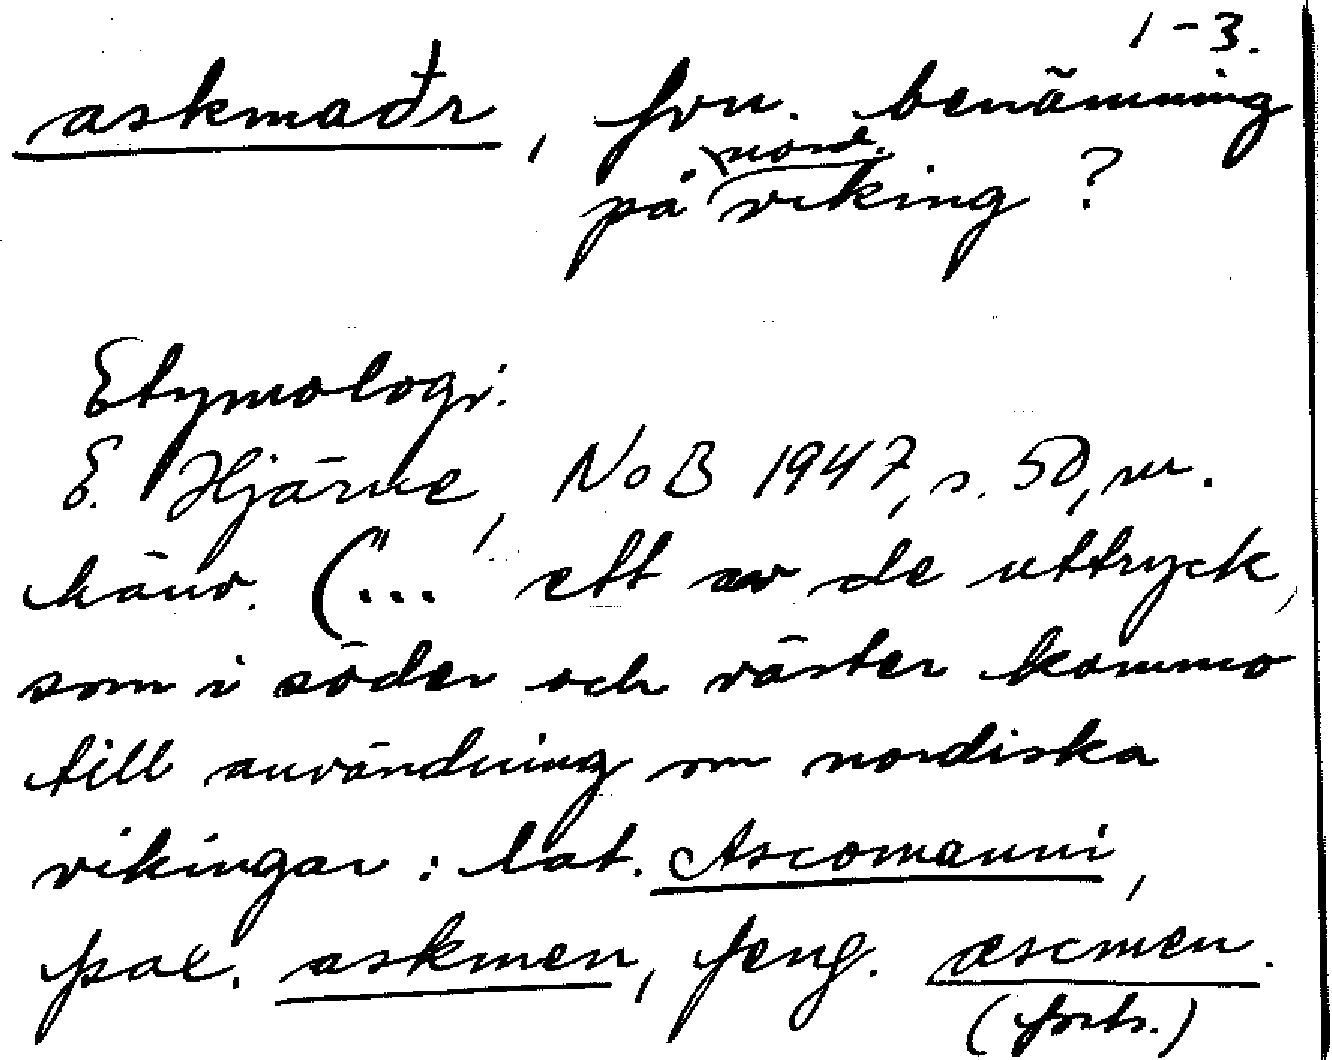 1-3.
askmaðr, fvn. benämning
på nord. viking ?
Etymologi:
E. Hjärne, NoB 1947, s. 50, m.
hänv. ("... ett av de uttryck,
som i söder och väster kommo
till användning om nordiska
vikingar : lat. Ascomanni,
pol. askmen, feng. æscmen.
(forts.)